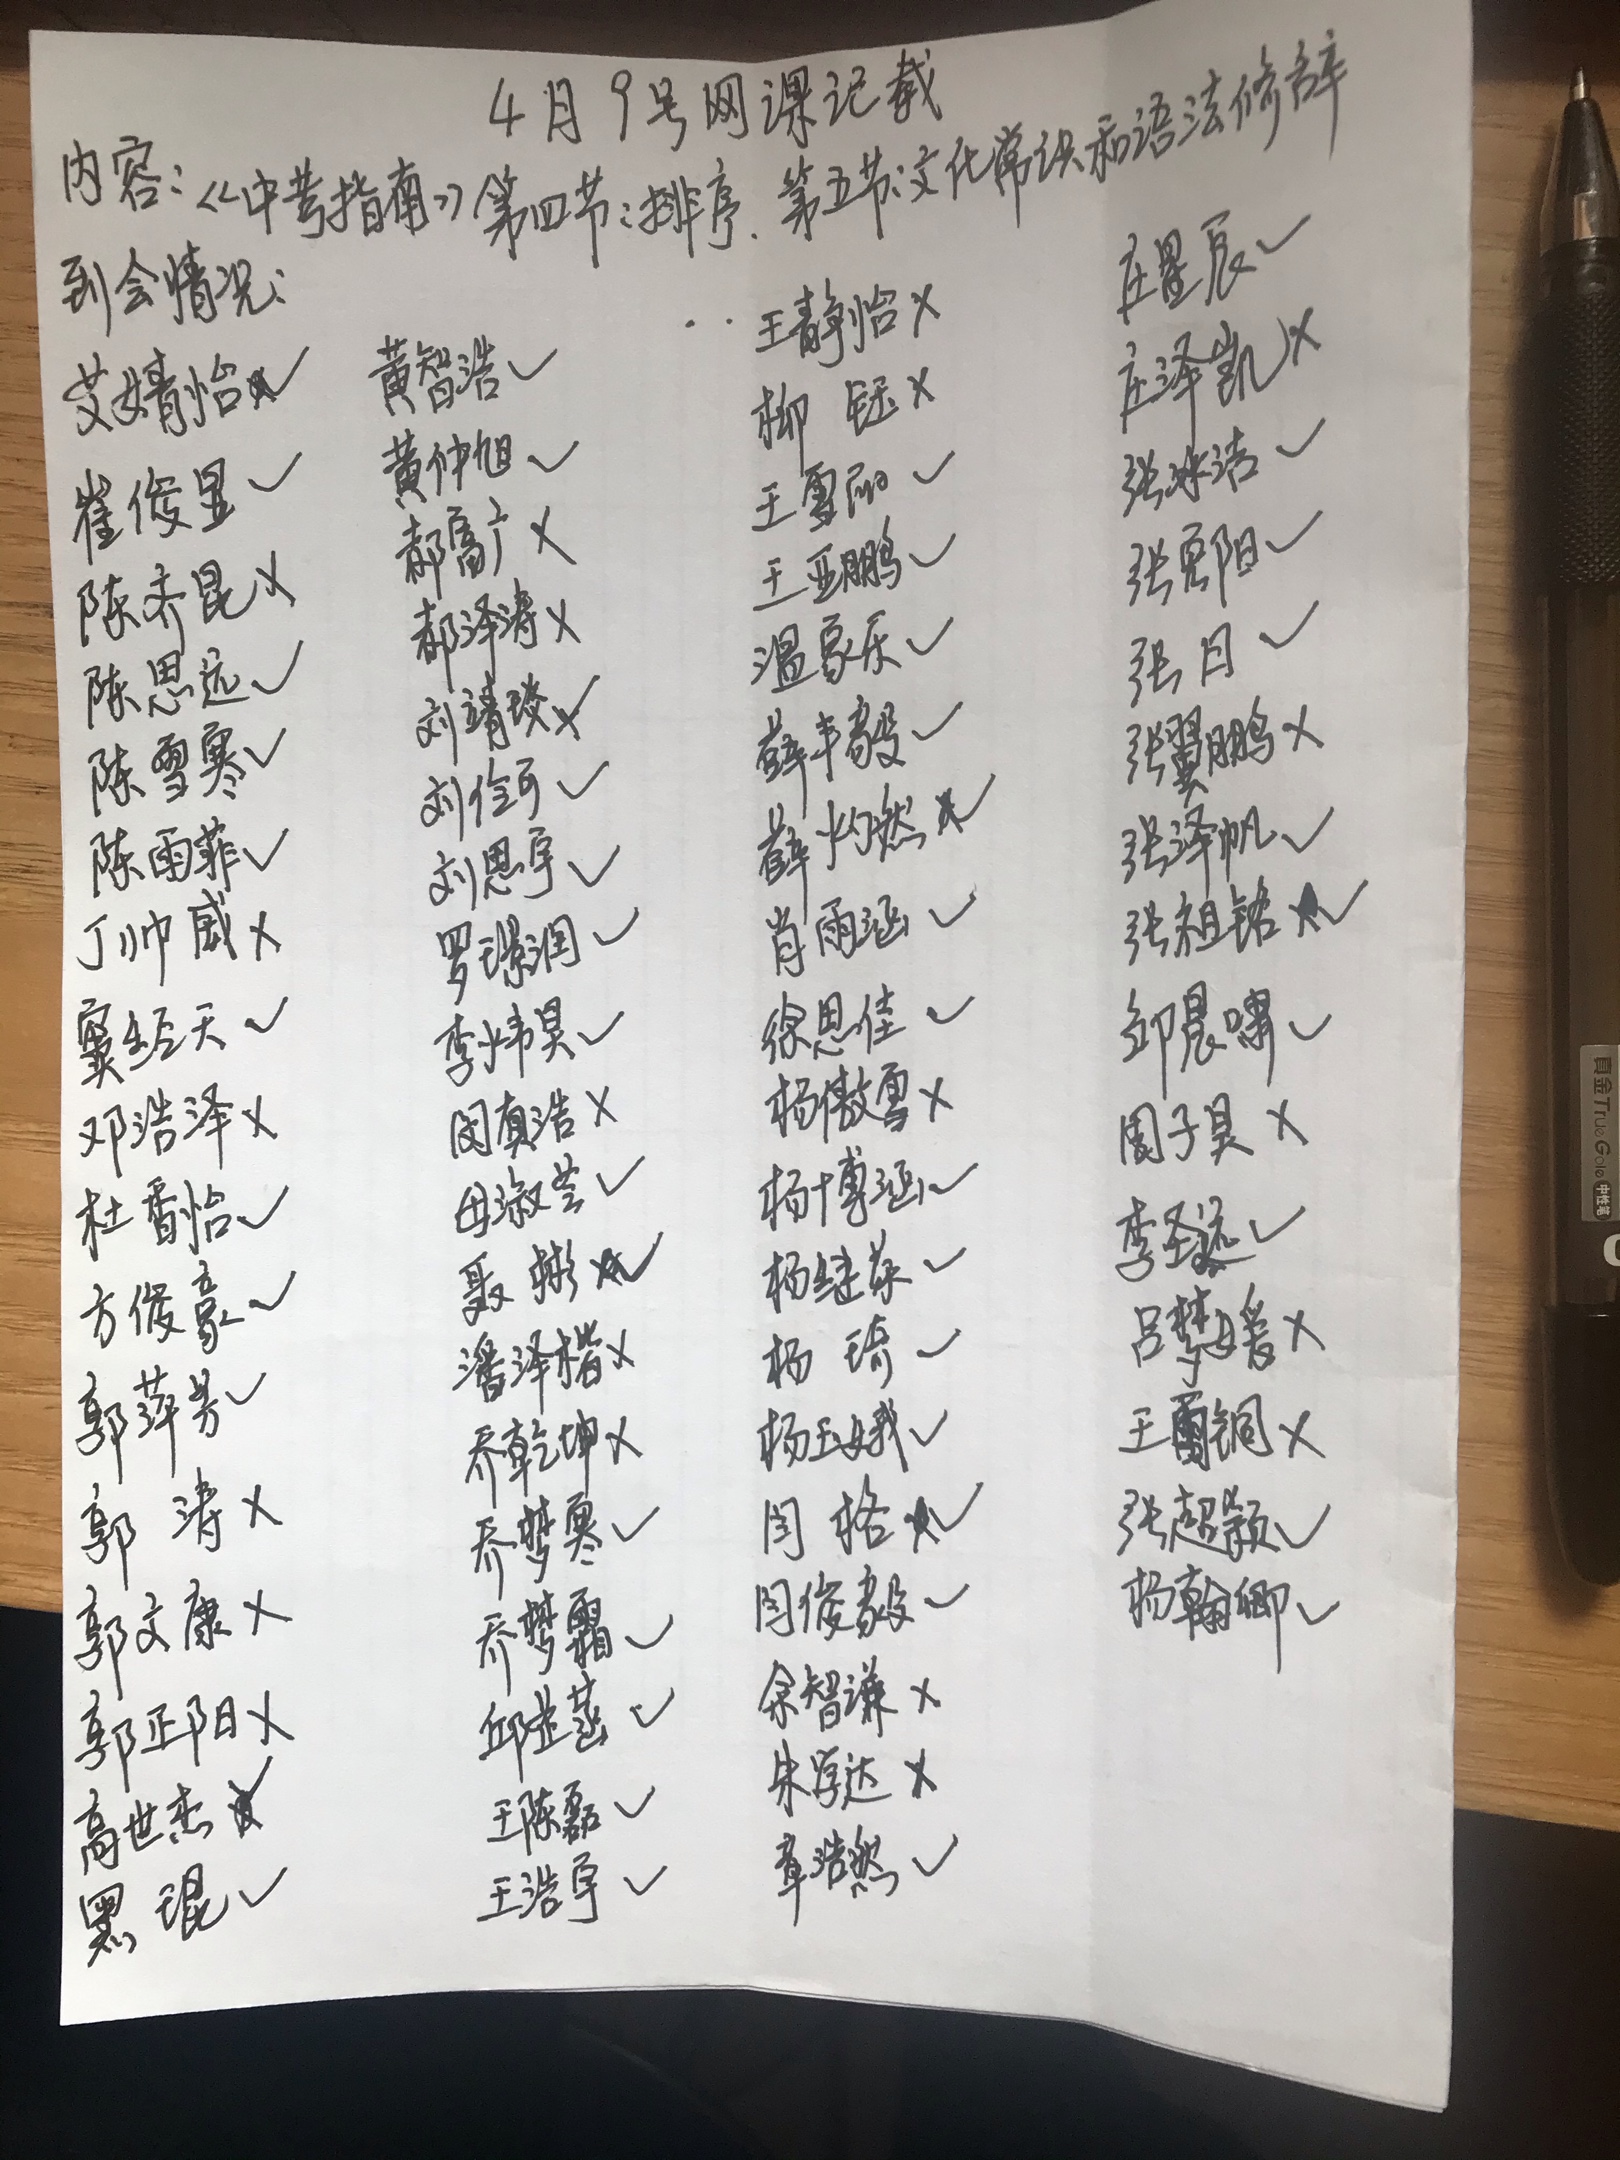 4月9号网课记载
内容:《中考指南》第四节:排序.第五节:文化常识和语法修辞
到会情况:
艾婧怡✓
崔俊显✓
陈乔昆×
陈思远✓
陈雪寒✓
陈雨菲✓
丁帅威×
窦经天✓
邓浩泽×
杜香怡✓
方俊豪✓
郭萍芳✓
郭 涛×
郭文康×
郭正阳×
高世杰✓
黑 琨✓
黄智浩✓
黄仲旭✓
郝富广×
郝泽涛×
刘靖璇✓
刘俭可✓
刘恩宇✓
罗璟润✓
李炜昊✓
闵真浩×
毋淑芸✓
聂 彬✓
潘泽楷×
乔乾坤×
乔梦寒✓
乔梦霜✓
邱芷菡✓
王陈磊✓
王浩宇✓
王静怡×
柳 钰×
王雪丽✓
王亚鹏✓
温家乐✓
薛丰毅✓
薛灼然✓
肖雨涵✓
徐思佳✓
杨傲雪×
杨博涵✓
杨继荣✓
杨 琦✓
杨玉娥✓
闫 格✓
闫俊毅✓
余智谦×
朱学达×
章浩然✓
庄星辰✓
庄泽凯×
张冰洁✓
张夏阳✓
张 月✓
张翼鹏×
张泽帆✓
张祖铭✓
邹晨啸✓
周子昊×
李圣远✓
吕梦媛×
王雷铜×
张超颖✓
杨翰卿✓
真金TrueGole中性笔